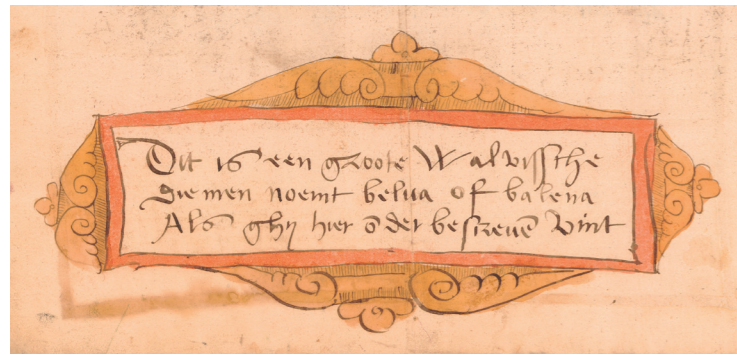 Dit is een groote Walvissche
Die men noemt belua of balena
Als ghy hier ōder bescreuē vint